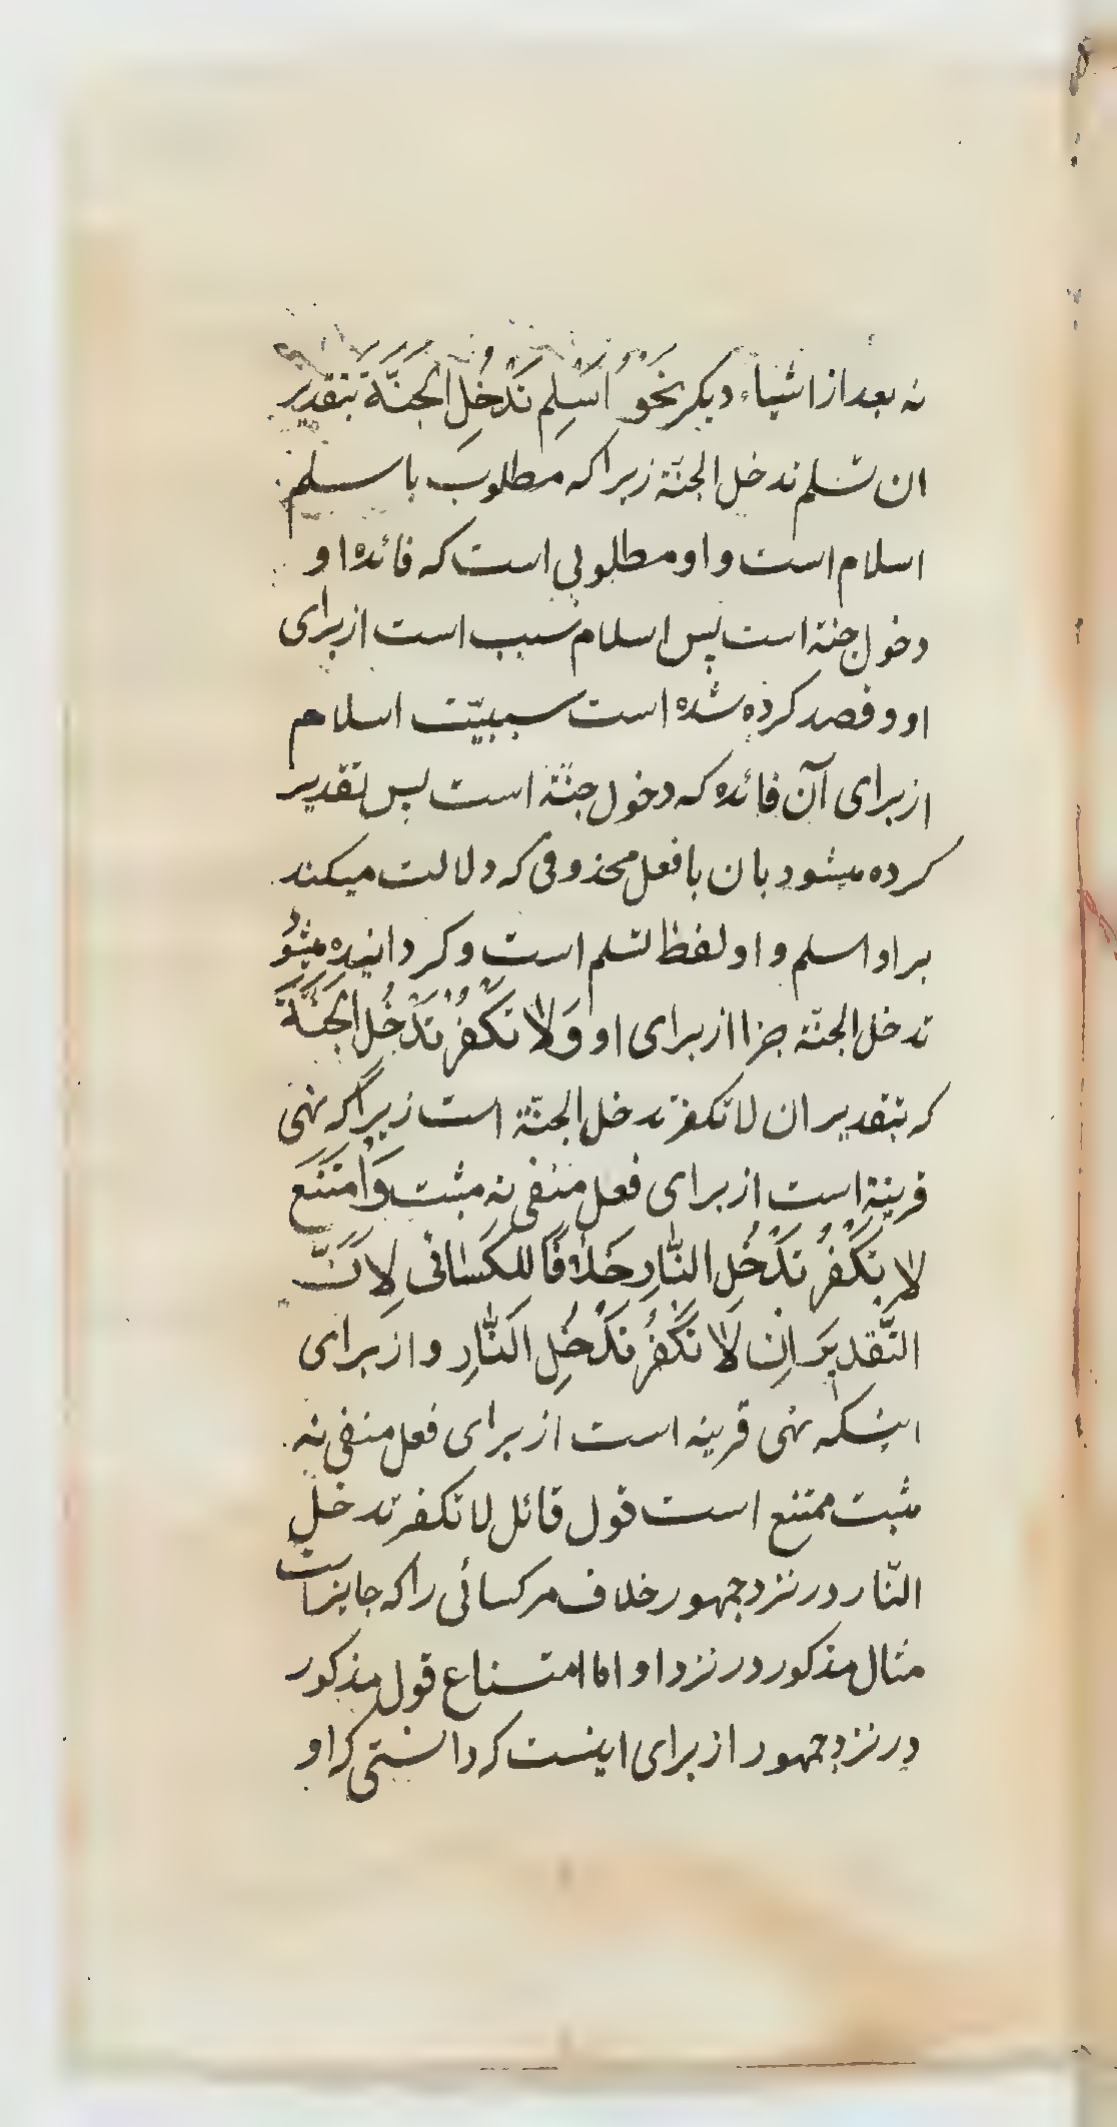 نه بعد از اشیاء دیگر نَحْوُ اَسْلِم تَدْخُلِ الجَنَّةَ بتقدیر
ان تسلم تدخل الجنّة زیرا که مطلوب با سلم
اسلام است و او مطلوبی است که فائده او
دخول جنة است پس اسلام سبب است از برای
او و قصد کرده شده است سببیّت اسلام
از برای آن فائده که دخول جنّة است پس تقدیر
کرده میشود بان با فعل محذوفی که دلالت میکند
بر او اسلم و او لفظ تسلم است و کردانیده میشود
تدخل الجنّة جزا از برای او وَلَا تَکْفُرْ تَدْخُلِ الجَنَّةَ
که بتقدیر ان لا تکفر تدخل الجنّة است زیرا که نهی
قرینة است از برای فعل منفی نه مثبت وَامْتَنَعَ
لا تَکْفُرْ تَدْخُلِ النّٰارِ خَلٰافًا لِلکَسٰائی لِاَنَّ
التَّقدیرَ اِن لَا تَکْفُرْ تَدْخُلِ النّٰارِ و از برای
اینکه نهی قرینه است از برای فعل منفی نه
مثبت ممتنع است قول قائل لا تکفر تدخل
النّار در نزد جمهور خلاف مر کسائی را که جایز است
مثال مذکور در نزد او اما امتناع قول مذکور
در نزد جمهور از برای اینست که دانستی که او